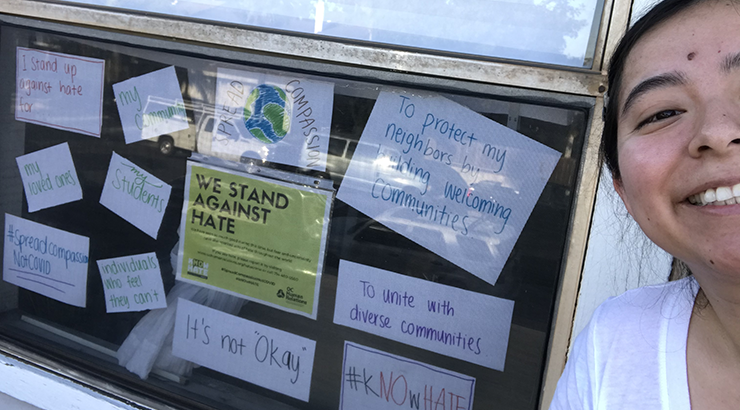 I stand up
against hate
for...
my
community
SPREAD
COMPASSION
To protect my
neighbors by
building welcoming
communities
my
loved ones
my
students
WE STAND
AGAINST
HATE
#spreadcompassion
NotCOVID
individuals
who feel
they can't
To unite with
diverse communities
It's not "Okay"
#kNOwHATE
OC
Human
Relations